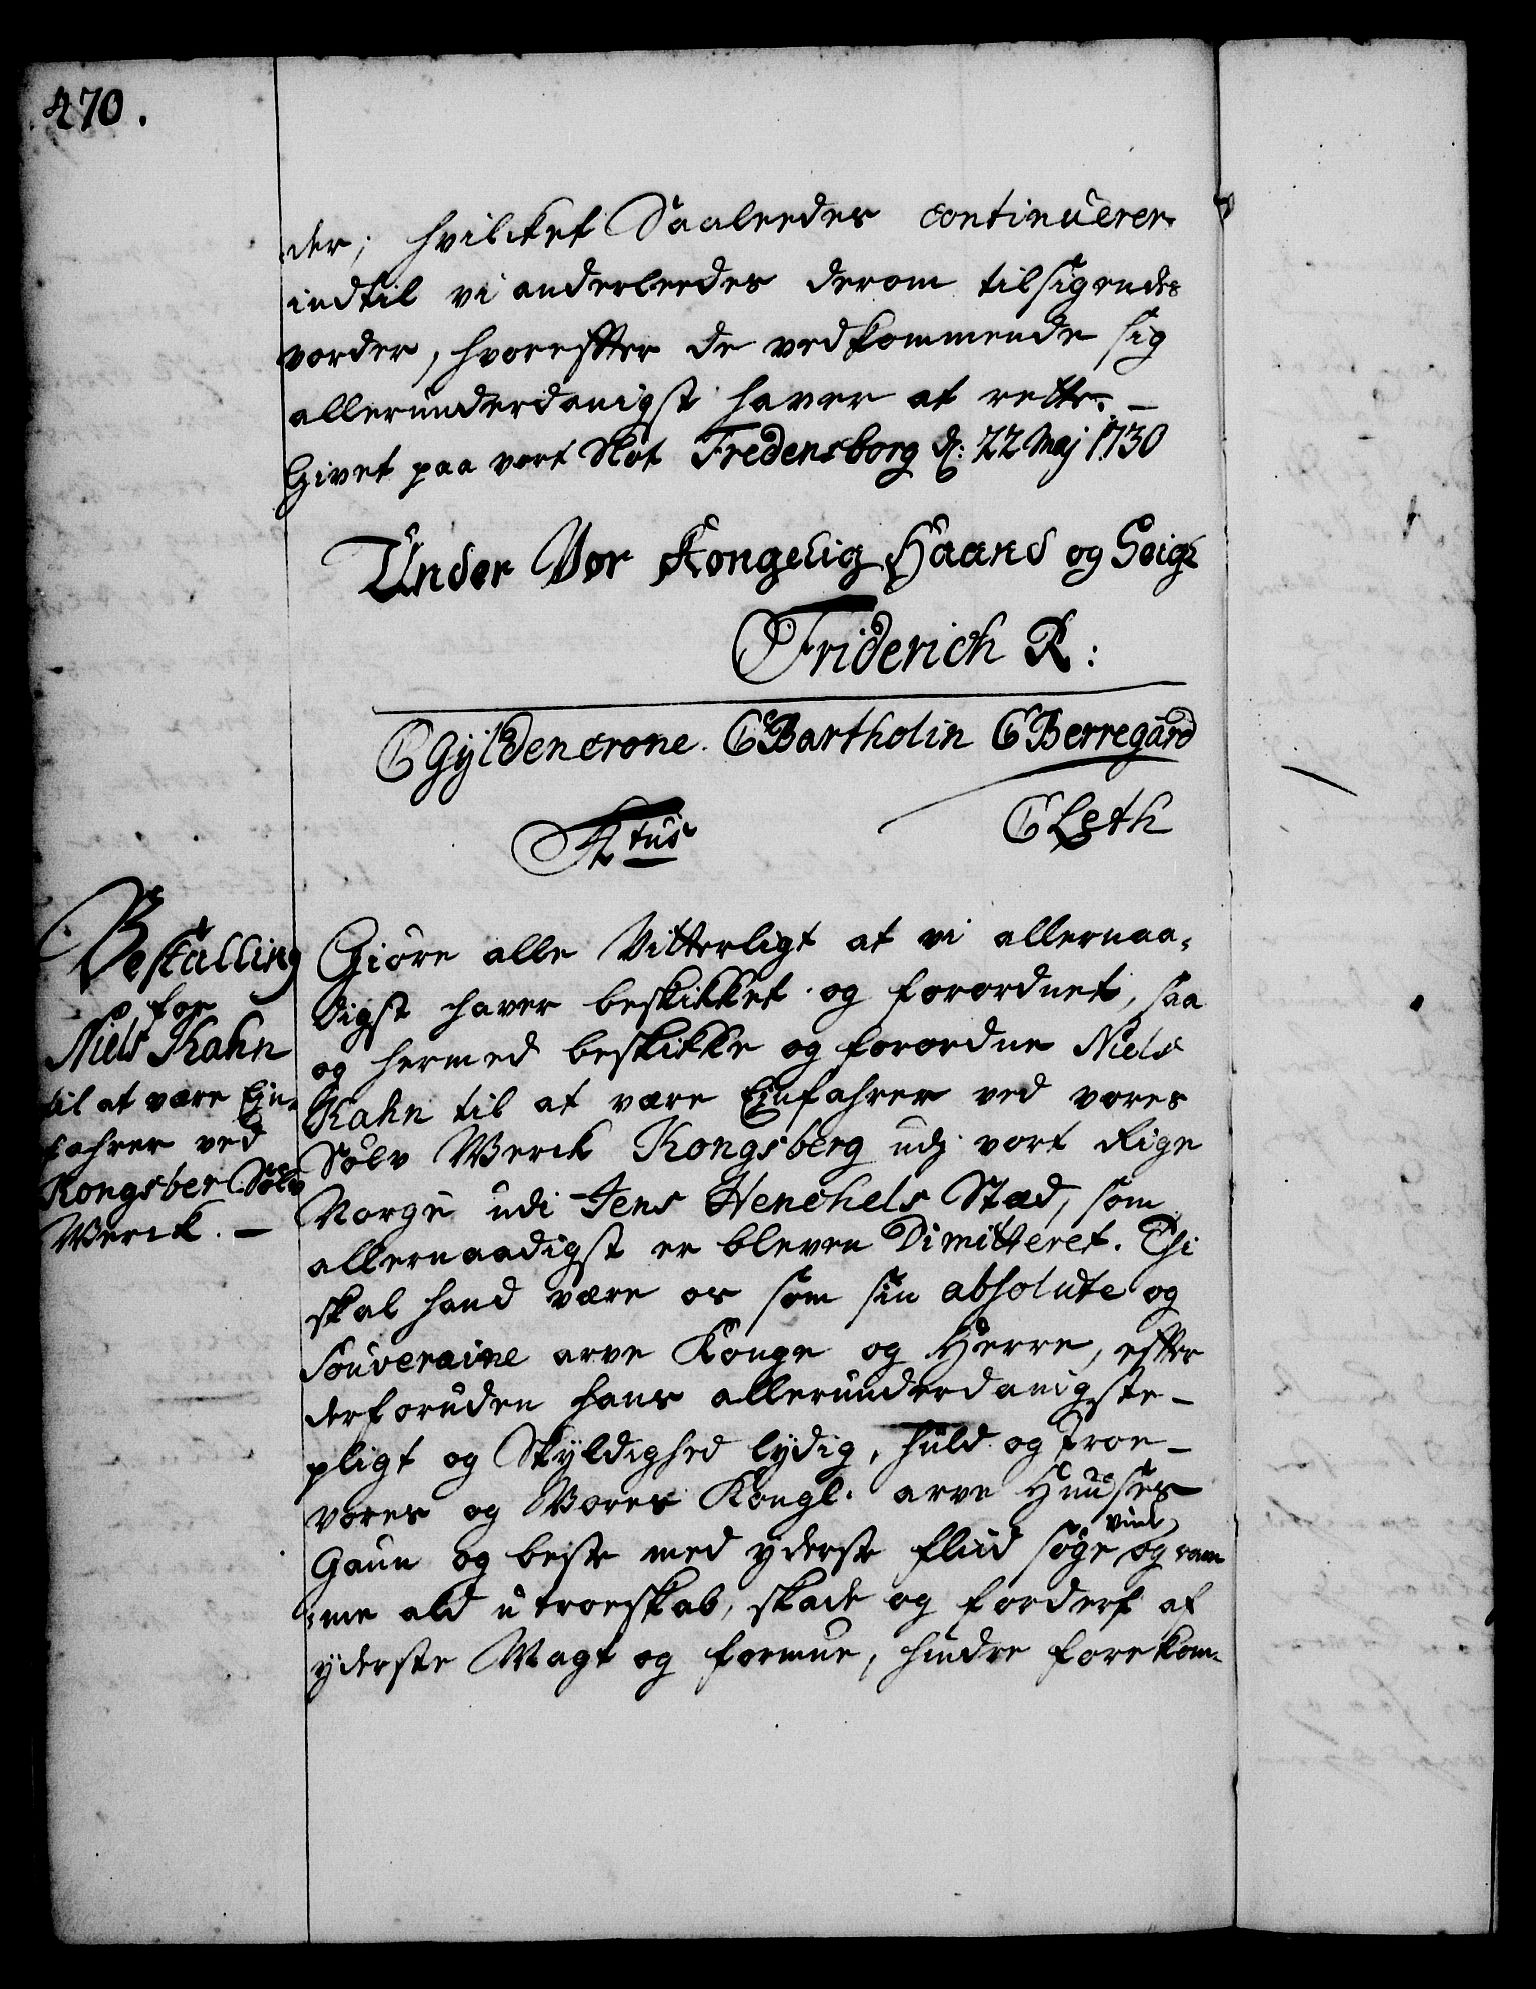 470.
der; hvilcket Saaleedes continuerer
indtil vi anderleedes derom tilsigendes
vorder, hvorefter de vedkommende sig
allerunderdanigst haver at rette. –
Givet paa vort Slot Fredensborg d: 22 Maj 1730
Under Vor Kongelig Haand og Seigl
Friderich R:
CGyldencrone. CBartholin CBerregård
CLeth
Bestalling
for
Niels Kahn
til at være Ein-
fahrer ved
Kongsber Sølv
Werck. –
Giøre alle Vitterligt at vi allernaa-
digst haver beskikket og forordnet, saa
og hermed beskikke og forordne Niels
Kahn til at være Einfahrer ved vores
Sølv Werck Kongsberg udj vort Rige
Norge udi Jens Henchels Stæd, som
allernaadigst er bleven Dimitteret. Thi
skal hand være os som sin absolute og
Souveraine arve Konge og Herre, efter
derforuden hans allerunderdanigste –
pligt og Skyldighed lydig, huld og troe –
vores og Vores Kongl. arve Huuses
Gavn og beste med yderste fliid søge vide og ram-
me ald utroeskab, skade og forderf af
yderste Magt og formue, hindre forekom-